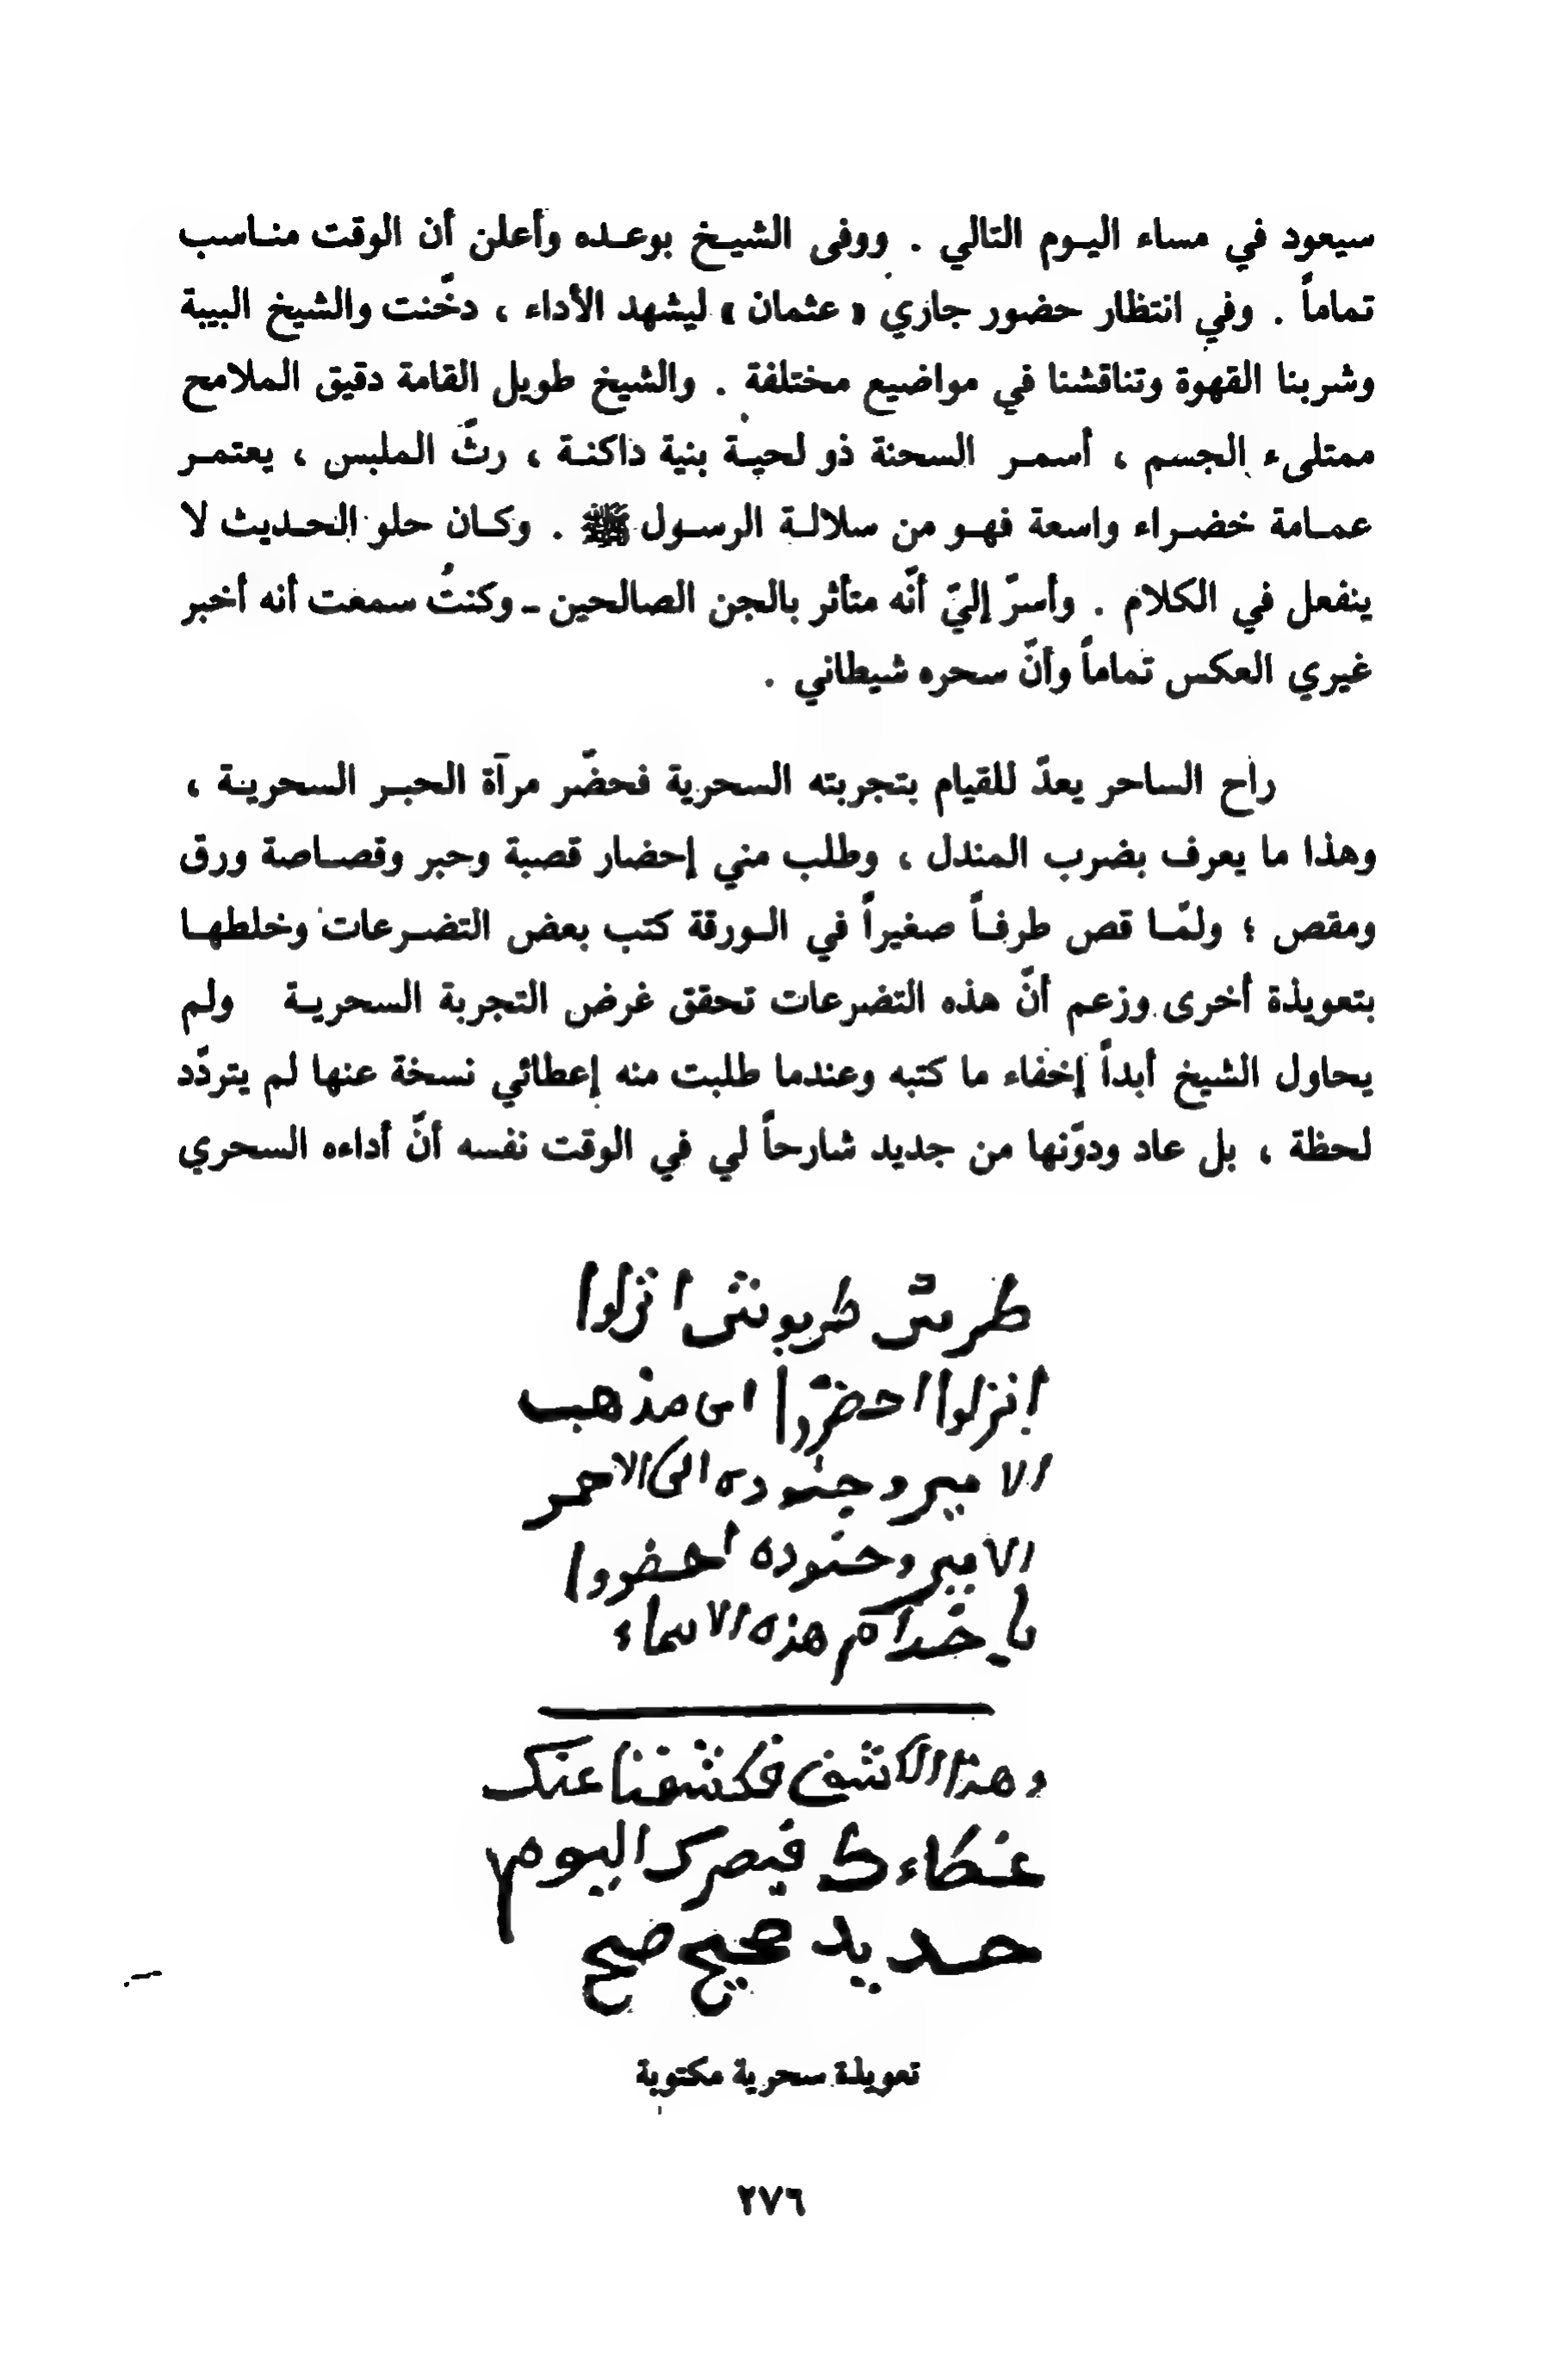 سيعود في مساء اليوم التالي . ووفى الشيخ بوعده وأعلن أن الوقت مناسب
تماماً . وفي انتظار حضور جاري « عثمان » ليشهد الأداء ، دخّنت والشيخ البيبة
وشربنا القهوة وتناقشنا في مواضيع مختلفة . والشيخ طويل القامة دقيق الملامح
ممتلىء الجسم ، أسمر السحنة ذو لحية بنية داكنة ، رثّ الملبس ، يعتمر
عمامة خضراء واسعة فهو من سلالة الرسول ﷺ . وكان حلو الحديث لا
ينفعل في الكلام . وأسرّ إليّ أنّه متأثر بالجن الصالحين ـ وكنتُ سمعت أنه أخبر
غيري العكس تماماً وأنّ سحره شيطاني .
راح الساحر يعدّ للقيام بتجربته السحرية فحضّر مرآة الحبر السحرية ،
وهذا ما يعرف بضرب المندل ، وطلب مني إحضار قصبة وحبر وقصاصة ورق
ومقص ؛ ولمّا قص طرفاً صغيراً في الورقة كتب بعض التضرعات وخلطها
بتعويذة أخرى وزعم أنّ هذه التضرعات تحقق غرض التجربة السحرية ولم
يحاول الشيخ أبداً إخفاء ما كتبه وعندما طلبت منه إعطائي نسخة عنها لم يتردّد
لحظة ، بل عاد ودوّنها من جديد شارحاً لي في الوقت نفسه أنّ أداءه السحري
طرش طريوش انزلوا
انزلوا احضروا اى مذهب
الامير وجنوده اى الاحمر
الامير وجنوده احضروا
يا خدام هذه الاسماء
وهذا الكشف فكشفنا عنك
غطاءك فبصرك اليوم
حديد صحيح صحيح
تعويذة سحرية مكتوبة
٢٧٦